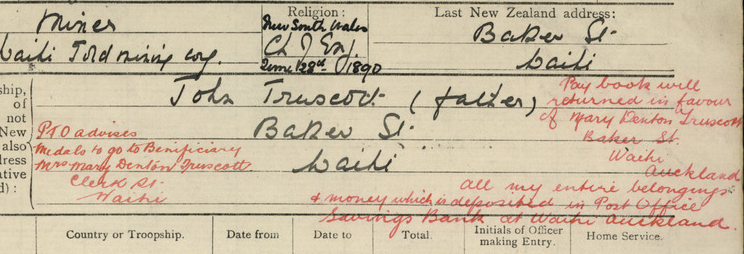 Miner
Waihi Gold mining Coy.
Religion:
New South Wales
Ch of Eng.
June 28th 1890
Last New Zealand address:
Baker St.
Waihi
ship,
of
not
New
also
dress
ative
d):
John Truscott (father)
Baker St.
Waihi
PTO advises
Medals to go to Benificiary
Mrs Mary Denton Truscott
Clerk St.
Waihi
Pay book will
returned in favour
of Mary Denton Truscott
Baker St.
Waihi
Auckland
all my entire belongings
& money which is deposited in Post Office
Savings Bank at Waihi Auckland.
Country or Troopship.
Date from
Date to
Total.
Initials of Officer
making Entry.
Home Service.